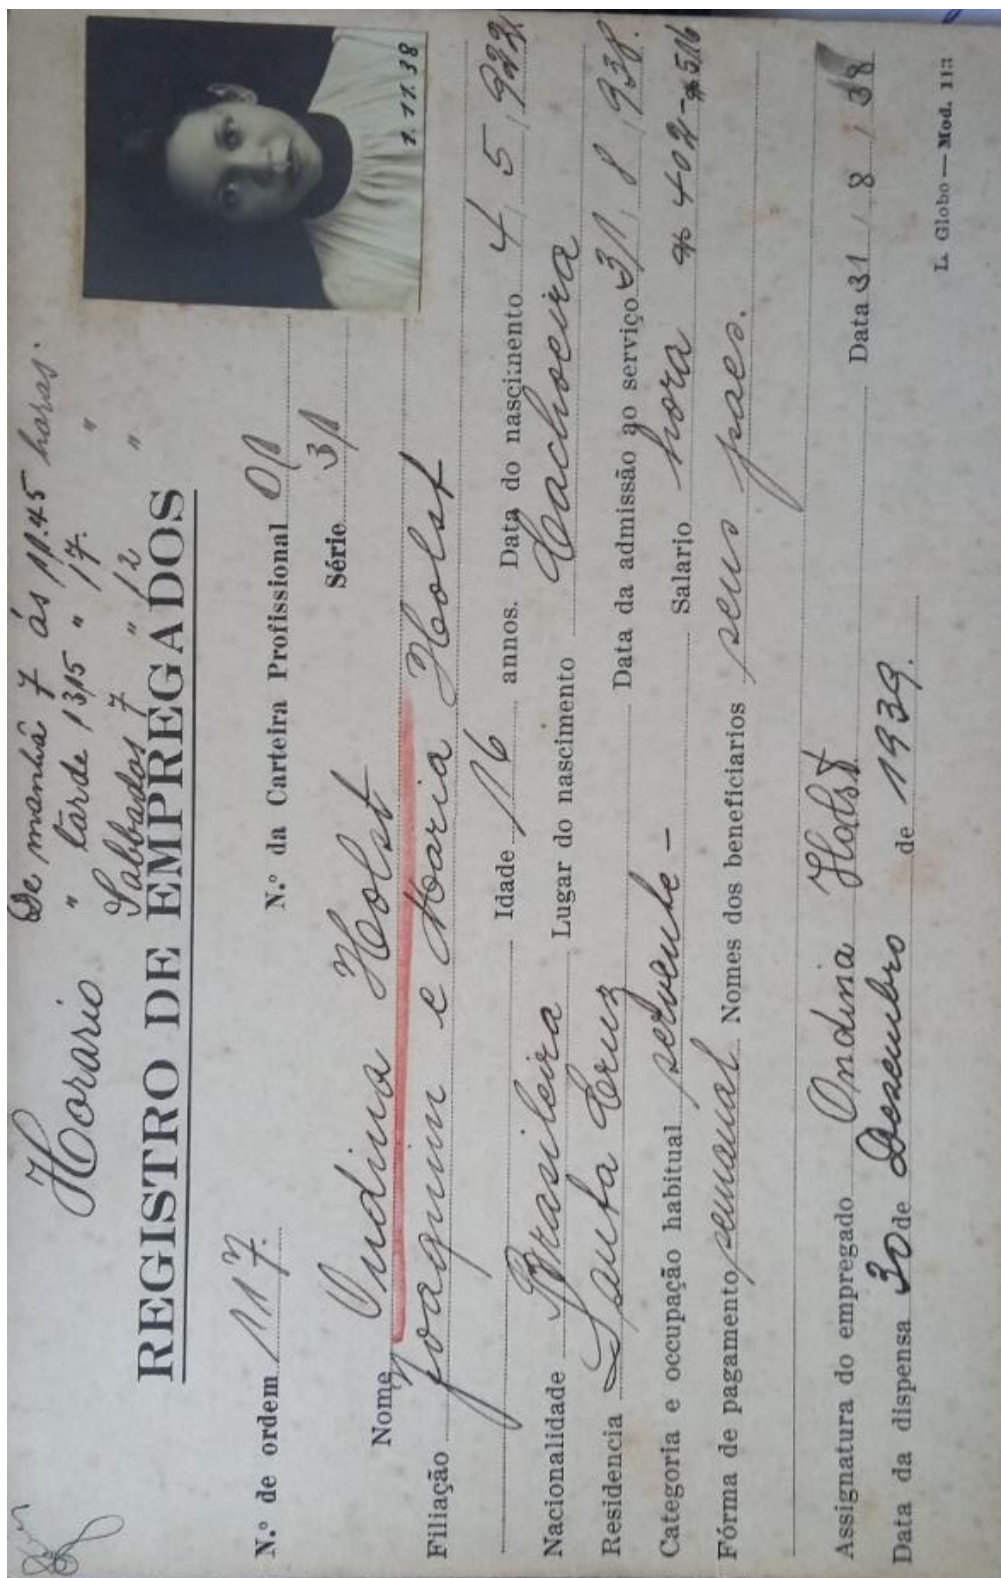 Horario De manhã 7 ás 11.45 horas.
" tarde 13,15 " 17. "
Sabbados 7 " 12 "
REGISTRO DE EMPREGADOS
1.11.38
N.º de ordem 117. N.º da Carteira Profissional 01
Série 31
Nome Ondina Holst
Filiação Joaquim e Maria Holst
Idade 16 annos. Data do nascimento 4, 5, 922
Nacionalidade Brasileira Lugar do nascimento Cachoeira
Residencia Santa Cruz Data da admissão ao serviço 31, 8, 938.
Categoria e occupação habitual servente - Salario hora 402 - 516
Fórma de pagamento semanal Nomes dos beneficiarios seus paes.
Assignatura do empregado Ondina Holst Data 31 / 8 / 38
Data da dispensa 30 de Dezembro de 1939.
L. Globo — Mod. 113